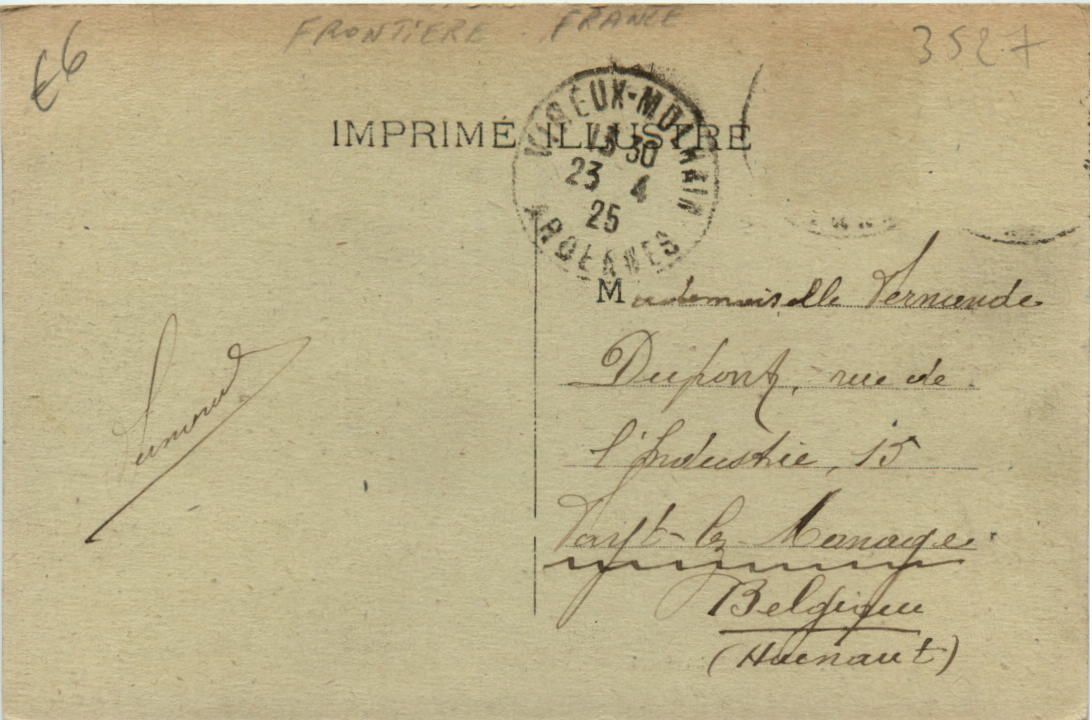 FRONTIERE. FRANCE
3527
€6
IMPRIMÉ ILLUSTRÉ
VIREUX-MOLHAIN
13 30
23 4
25
ARDENNES
Mademoiselle Fernande
Dupont, rue de
l'Industrie, 15
Fayt-lez-Manage
Belgique
(Hainaut)